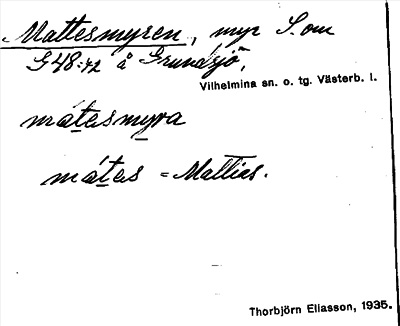 Mattesmyren, myr S. om
G48:72 å Grundsjö,
Vilhelmina sn. o. tg. Västerb. l.
mátesmyra
mátes = Mattias.
Thorbjörn Eliasson, 1935.